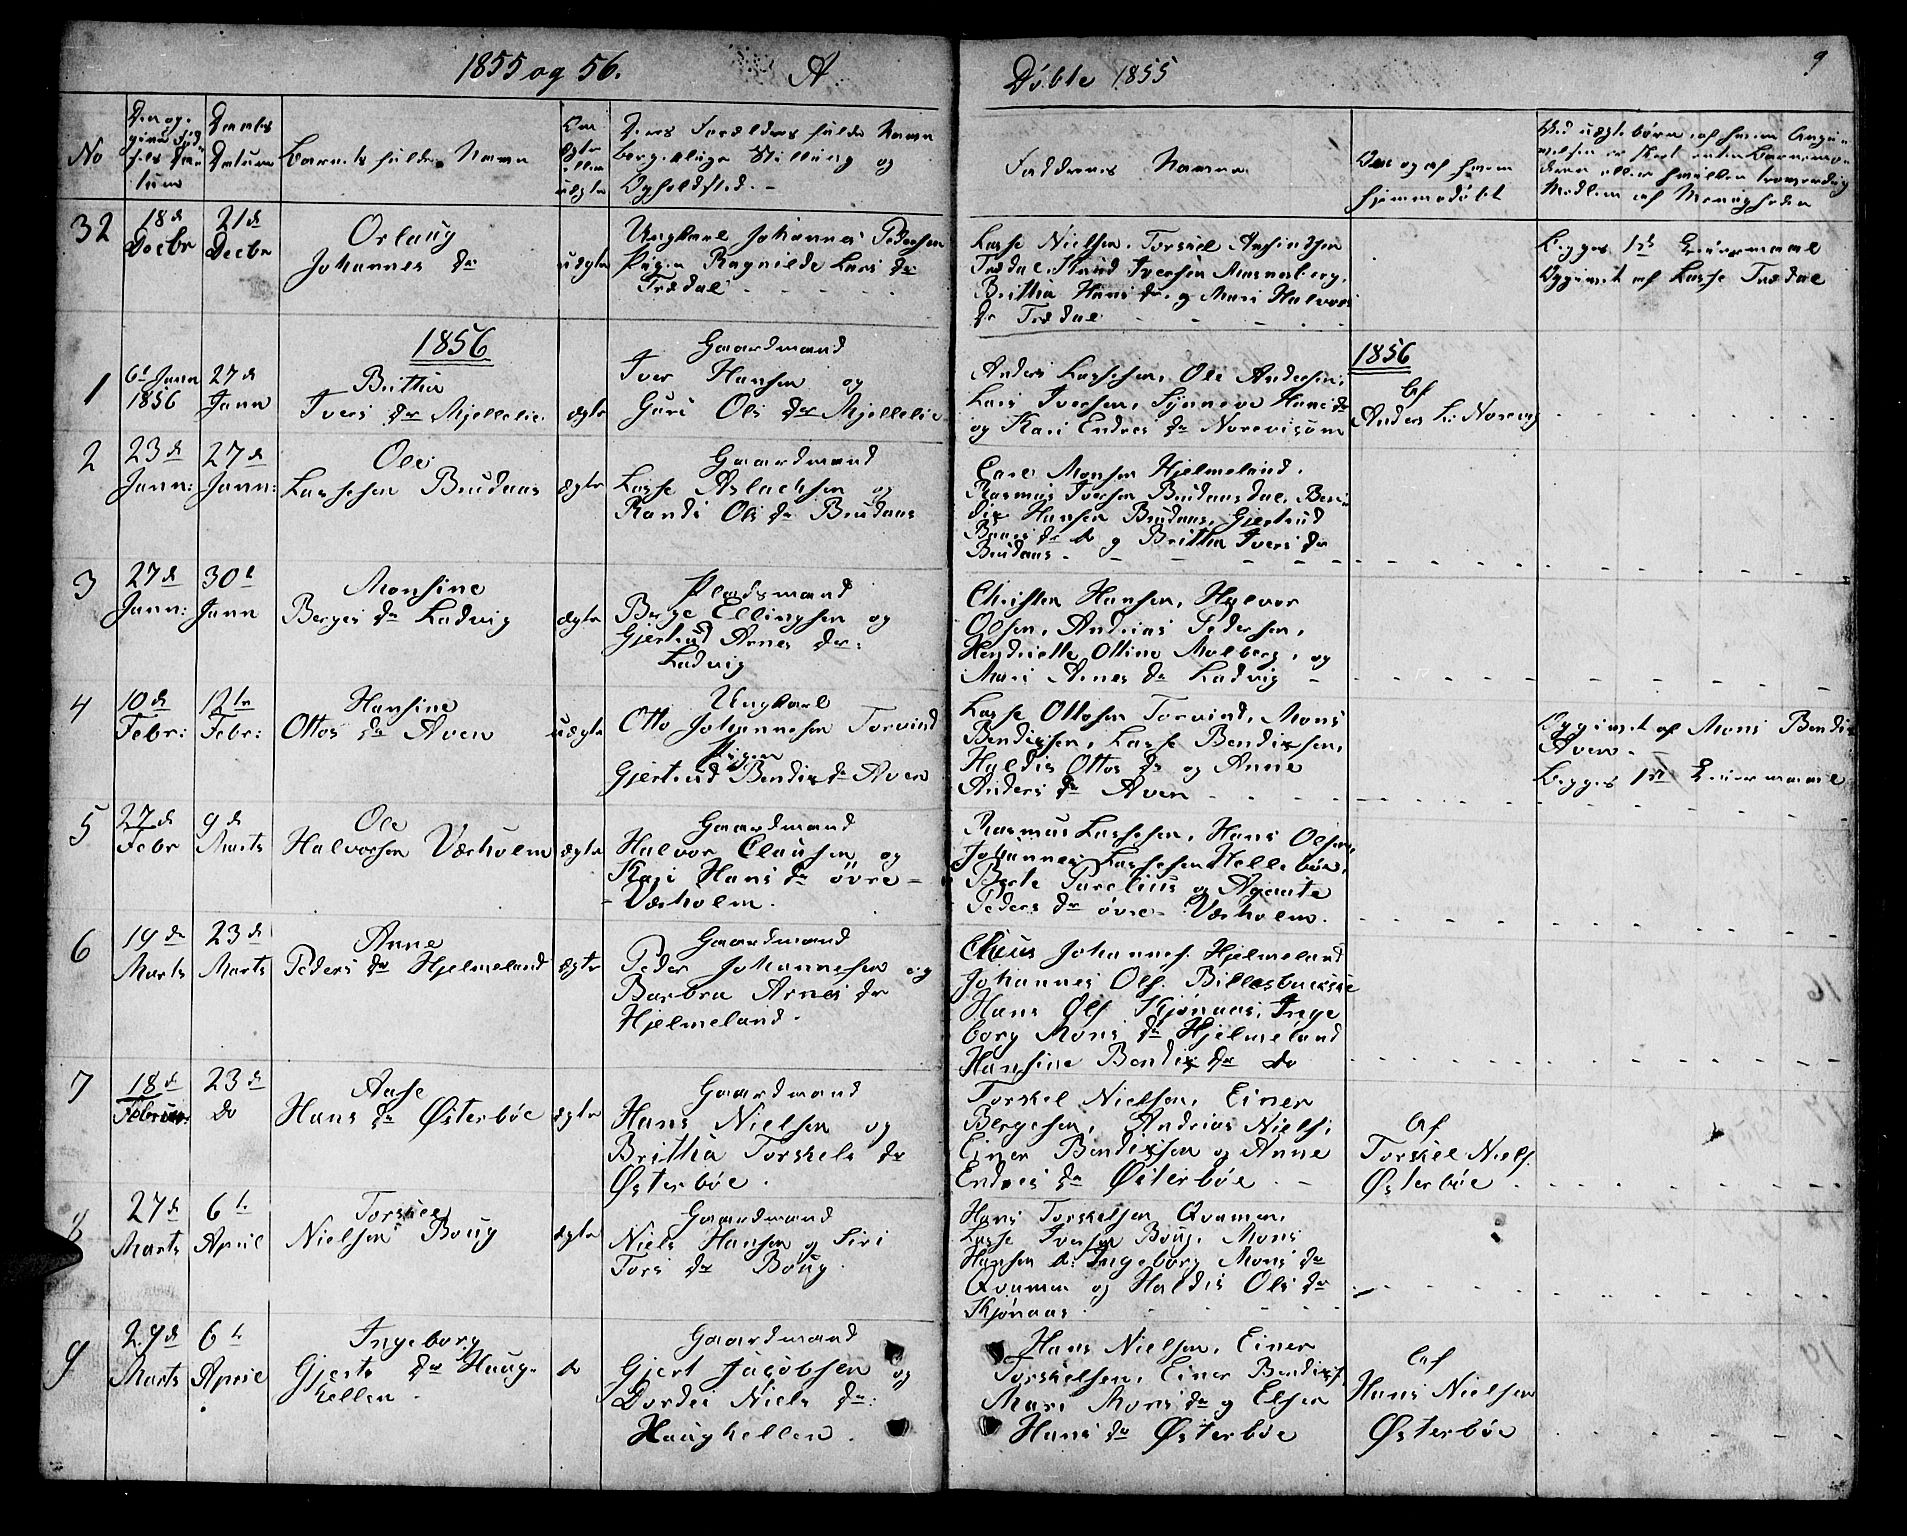 1855 og 56.
A
Døbte 1855
9
No
Datum
Barnets fulde Navn
Om ægte eller uægte
Deres Forældres fulde Navn
borgerlige Stilling og
Opholdsted.
Faddernes Navne
Om og af hvem
hjemmedøbt
Medlem af Menigheden
32
18 d
Decbr
21 d
Decbr
Orlaug
Johannes dr
uægte
Ungkarl Johannes Pedersen
Pigen Ragnilde Lars dr
Trædal
Lasse Nielsen, Torskel Amundsen
Britha Hans dr. og Mari Halvors
dr Trædal
Begges 1st Leiermaal
Opgivet af Lasse Trædal
1856
1856
1
6t Janr
1856
27 d
Janr
Britha
Ivers dr Mjellelie
ægte
Gaardmand
Iver Hansen og
Guri Ols dr Mjellelie
Anders Lassesen, Ole Andersen,
Lars Iversen, Synneve Hans dr
og Kari Endres dr Norevigøen
Af
Anders L: Norevig
2
23 d
Janr:
27 d
Janr:
Ole
Lassesen Brudaas
ægte
Gaardmand
Lasse Aslacksen og
Randi Ols dr Brudaas
Carl Monsen Hjelmeland,
Rasmus Iversen Brudaasdal, Ben
dix Hansen Brudaas, Gjertrud
og Britha Ivers dr
Brudaas
3
27 d
Janr:
30 t
Janr
Monsine
Berges dr Ladvig
ægte
Pladsmand
Berge Ellingsen og
Gjertrud Arnes dr:
Ladvig
Christen Hansen, Halvor
Olsen, Andrias Pedersen,
Hendriette Ottine Molberg, og
Mari Arnes dr Ladvig
4
10 d
Febr:
12te
Febr:
Hansine
Ottos dr Aven
uægte
Ungkarl
Otto Johannesen Torvind
Pigen
Gjertrud Bendix dr Aven
Lasse Ottosen Torvind, Mons
Bendixsen, Lasse Bendixsen,
Haldis Ottos dr og Anne
Anders dr Aven
Opgivet af Mons Bendix
Aven.
Begges 1st Leiermaal
5
27 d
Febr
9 d
Marts
Ole
Halvorsen Værholm
ægte
Gaardmand
Halvor Clausen og
Kari Hans dr øvre
Værholm.
Rasmus Lassesen, Hans Olsen,
Johannes Lassesen Hellebøe,
Berte Parelius og Agaate
Peders dr øvre Værholm.
6
19 de
Marts
23 d
Marts
Anne
Peders dr Hjelmeland
ægte
Gaardmand
Peder Johannesen og
Barbra Arnes dr
Hjelmeland.
Claus Johannes. Hjelmeland
Johannes Ols. Billesbakke
Hans Ols Kjønaas, Inge
borg Mons dr Hjelmeland
Hansine Bendix dr do
7
18 d
Februar
23 d
do
Aase
Hans dr Østerbøe
ægte
Gaardmand
Hans Nielsen og
Britha Torskels dr
Østerbøe.
Torskel Nielsen, Einer
Bergesen, Andrias Niels,
Einer Bendixsen og Anne
Endres dr Østerbøe
Af
Torskel Niels.
Østerbøe
8
27 d
Marts
6 t
April
Torskel
Nielsen Boug
ægte
Gaardmand
Niels Hansen og Siri
Tors dr Boug.
Hans Torskelsen Qvamen,
Lasse Iversen Boug, Mons
Hansen do: Ingeborg Mons dr
Qvamen og Haldis Ols dr
Kjønaas.
9
29 d
Marts
6 t
April
Ingeborg
Gjerts dr Haug
hellen.
do
Gaardmand
Gjert Jacobsen og
Dordei Niels dr:
Haughellen.
Hans Nielsen, Einer
Torskelsen, Einer Bendixs,
Mari Mons dr og Elsen
Hans dr Østerbøe
Af
Hans Nielsen
Østerbøe